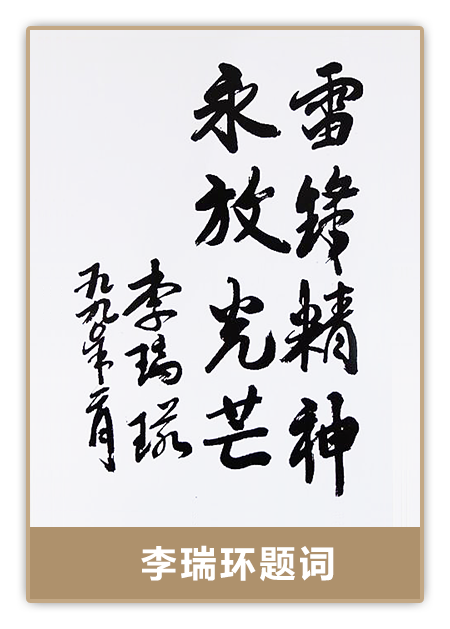 雷鋒精神
永放光芒
李瑞环
一九九〇年二月
李瑞环题词